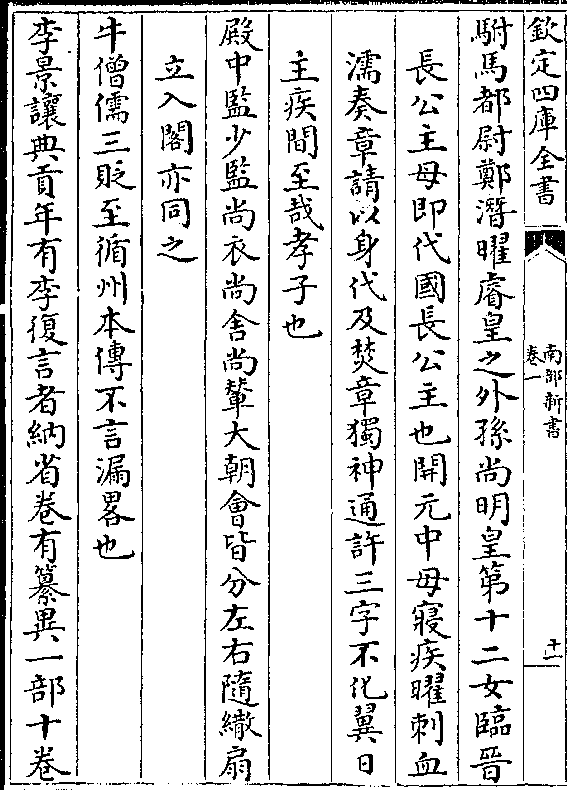 欽定四庫全書
南部新書
卷一
十一
駙馬都尉鄭潛曜睿皇之外孫尚明皇第十二女臨晉
長公主母即代國長公主也開元中母寢疾曜刺血
濡奏章請以身代及焚章獨神通許三字不化翼日
主疾間至哉孝子也
殿中監少監尚衣尚舍尚輦大朝會皆分左右隨繖扇
立入閤亦同之
牛僧儒三貶至循州本傳不言漏畧也
李景讓典貢年有李復言者納省卷有纂異一部十卷